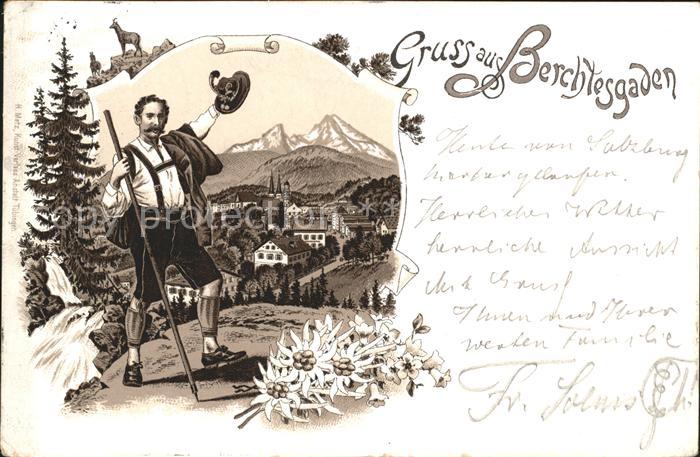 Gruss aus Berchtesgaden
Heute von Salzburg
hierher gelaufen.
Herrliches Wetter
herrliche Aussicht
Mit Gruß
Ihnen und Ihrer
werten Familie
Fr. Solms
H. Metz, Kunst-Verlags-Anstalt Tübingen
copy protection